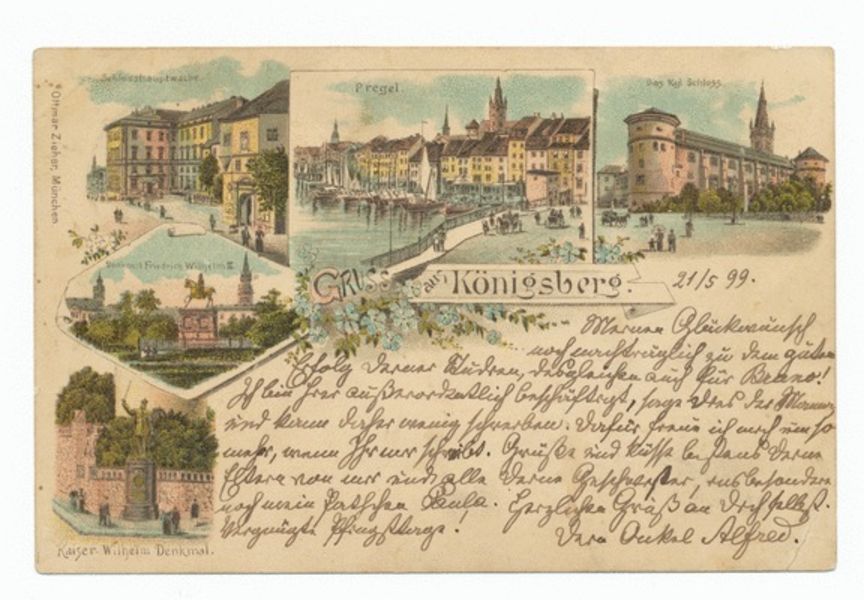 Schlosshauptwache.
Pregel.
Das Kgl. Schloss.
Ottmar Zieher, München
Denkmal Friedrich Wilhelm III
Gruss aus Königsberg.
21/5 99.
Meinen Glückwünsch
noch nachträglich zu dem guten
Erfolg deiner Studien, desgleichen auch für Bruno!
Ich bin hier außerordentlich beschäftigt, sage dies der Mama
und kann daher wenig schreiben. Dafür freue ich mich um so
mehr, wenn Ihr mir schreibt. Grüße und Küsse bestens deine
Eltern von mir und alle deine Geschwister, insbesondere
noch mein Pathchen Paula. Herzlichen Gruß an Dich selbst.
Vergnügte Pfingsttage! Dein Onkel Alfred.
Kaiser-Wilhelm Denkmal.